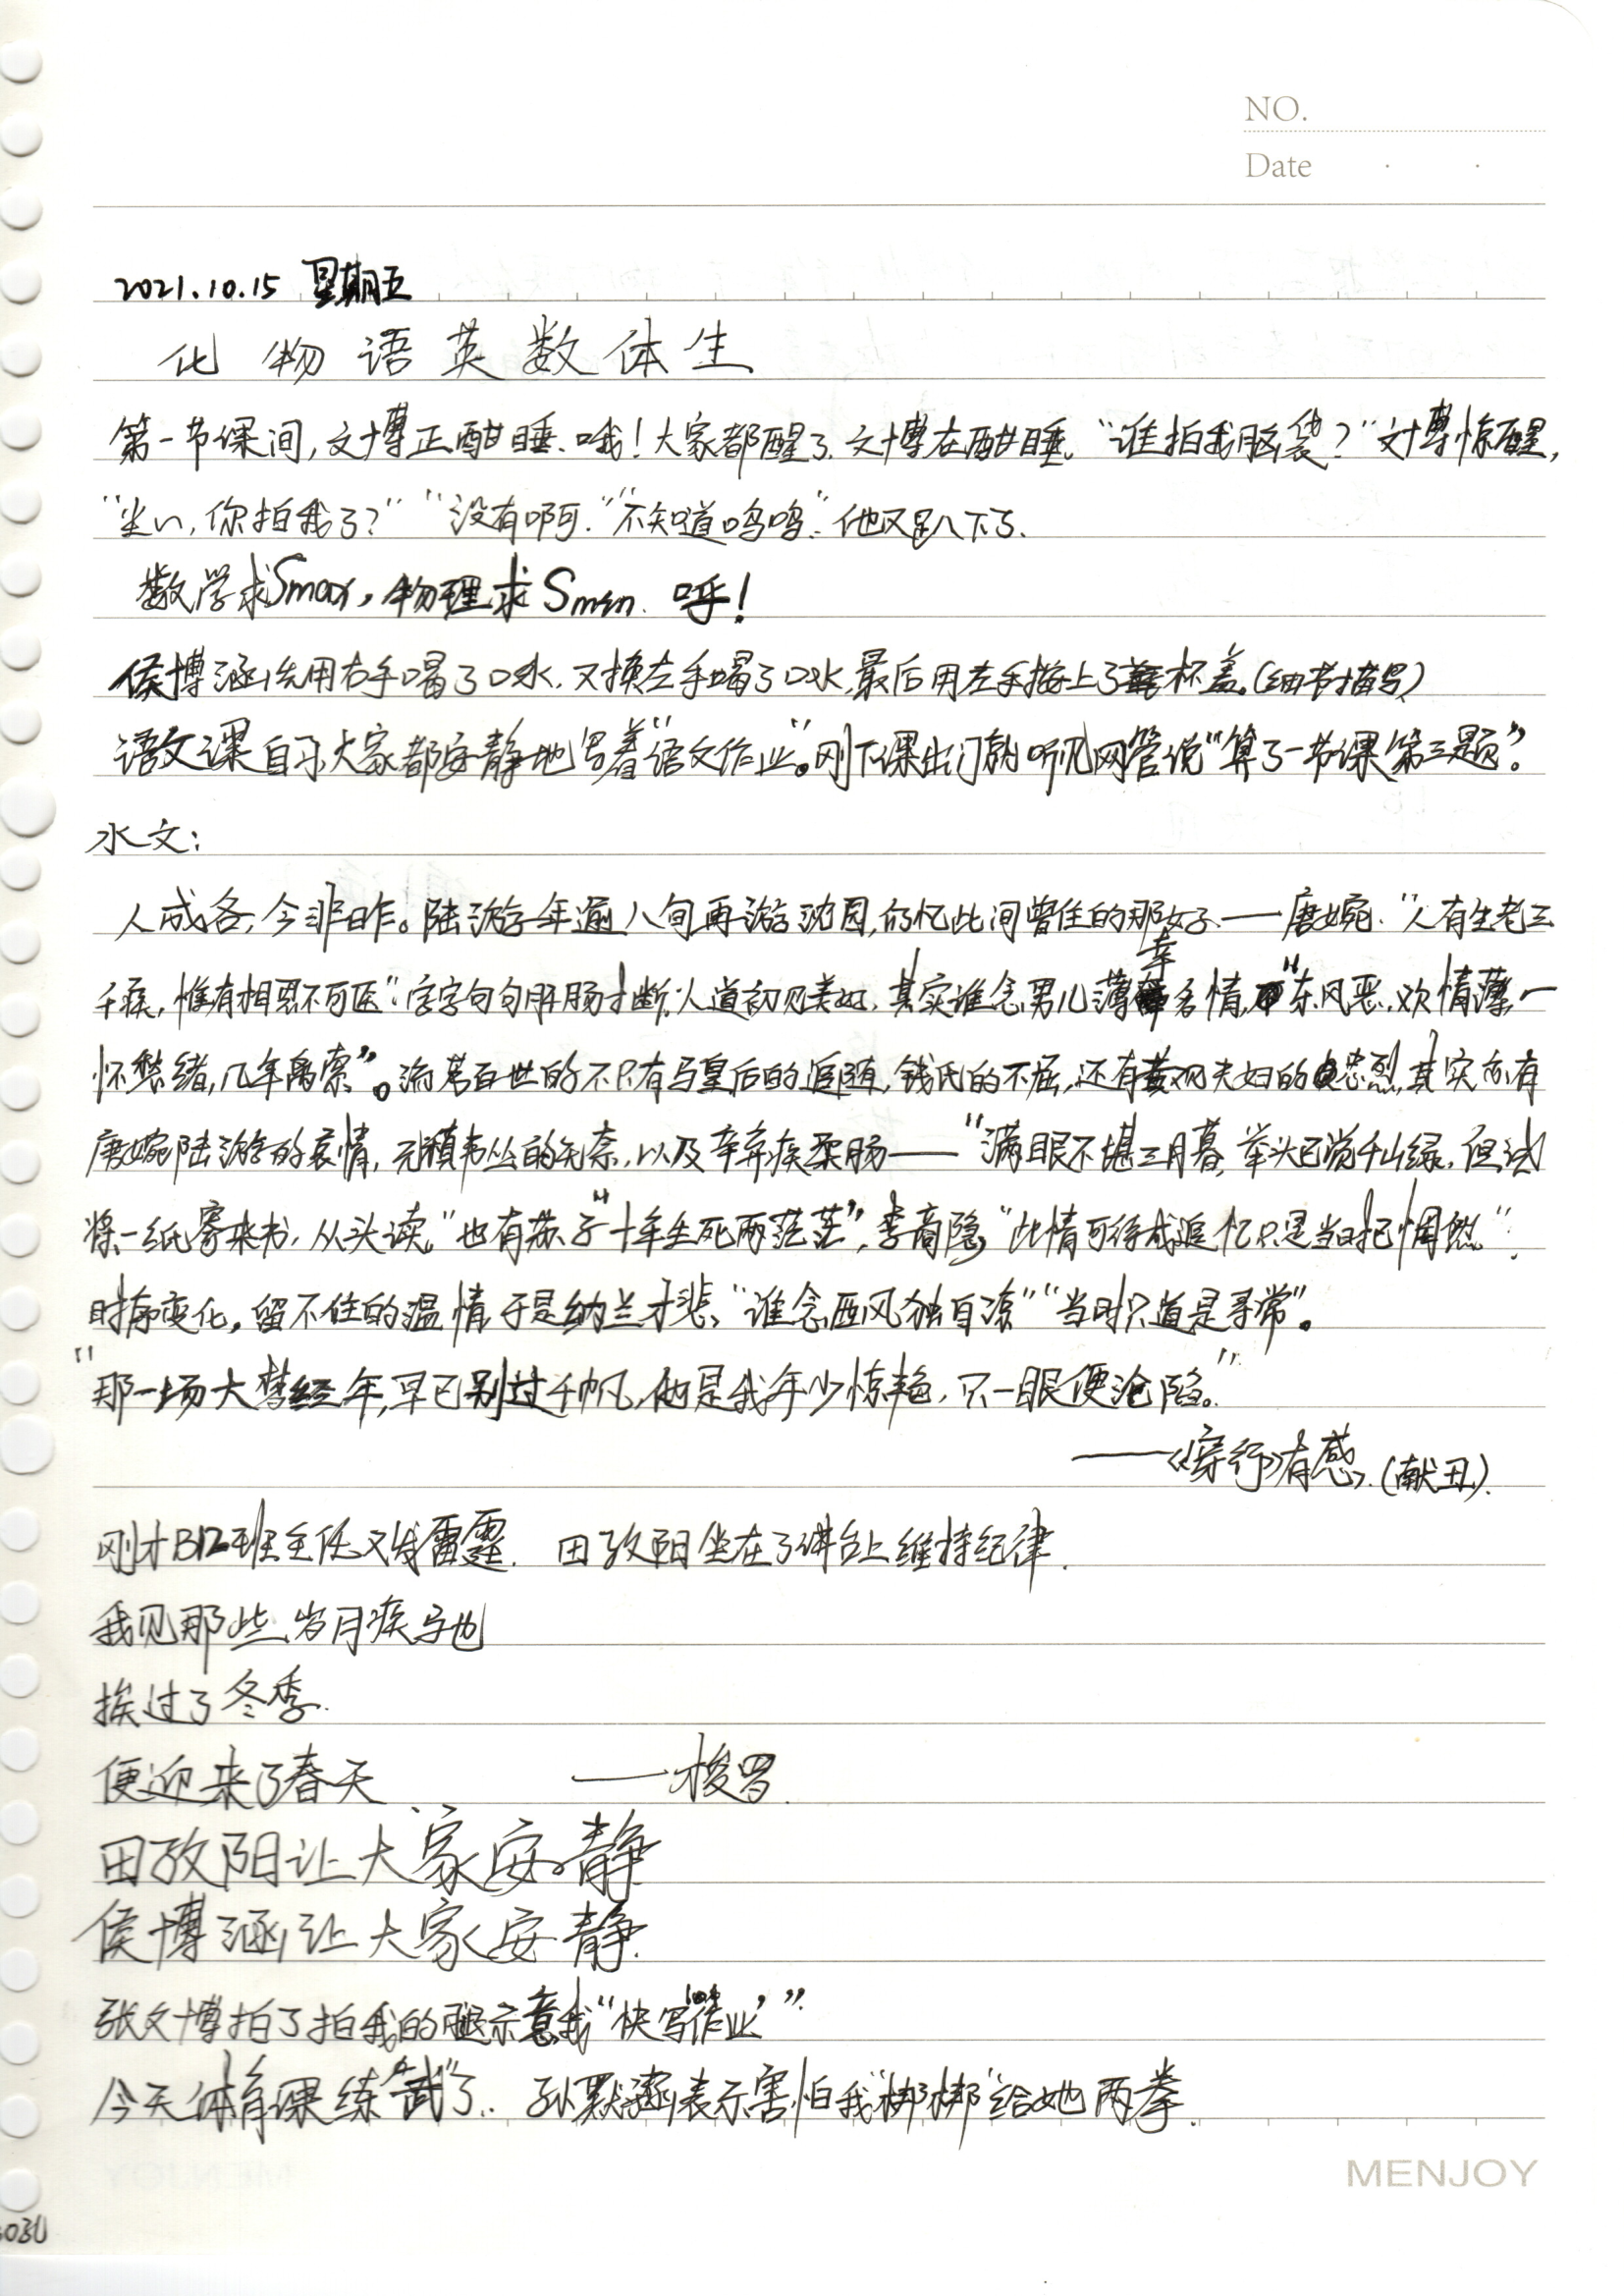 NO.
Date
2021.10.15 星期五
化 物 语 英 数 体 生
第一节课间,文博正酣睡.哦!大家都醒了.文博在酣睡。“谁拍我脑袋?”文博惊醒,
你拍我了?”“没有啊.”“不知道呜呜.”他又趴下了.
数学求Smax,物理求Smin. 呼!
侯博涵先用右手喝了口水.又换左手喝了口水,最后用左手接上了杯盖。(细节描写)
语文课自习大家都安静地写着“语文作业”。刚下课出门就听见网管说“算了一节课第三题”。
水文:
人成各,今非昨。陆游年逾八旬再游沈园,仍忆此间曾住的那女子——唐婉.“人有生老三
千疾,惟有相思不可医”.字字句句肝肠才断.人道初见美好,其实谁念男儿薄幸多情,“东风恶,欢情薄,一
怀愁绪,几年离索”。流芳百世的不只有马皇后的追随,钱氏的不屈,还有黄观夫妇的忠烈,其实亦有
唐婉陆游的哀情,元稹韦丛的无奈,以及辛弃疾柔肠——“满眼不堪三月暮,举头已觉千山绿.但试
将一纸寄来书,从头读。”也有苏子“十年生死两茫茫”,李商隐“此情可待成追忆只是当时已惘然”.
时序变化,留不住的温情,于是纳兰才悲、“谁念西风独自凉”“当时只道是寻常”。
“那一场大梦经年,早已别过千帆,他是我年少惊艳,只一眼便沦陷。”
——《穿行》有感.(献丑).
刚才B12班主任又发雷霆. 田孜阳坐在了讲台上维持纪律.
我见那些岁月疾驰
挨过了冬季.
便迎来了春天 ——梭罗.
田孜阳让大家安静
侯博涵让大家安静.
张文博拍了拍我的腿示意我“快写作业”
今天体育课练“武”了.. 孙默涵表示害怕我“梆梆”给她两拳.
MENJOY